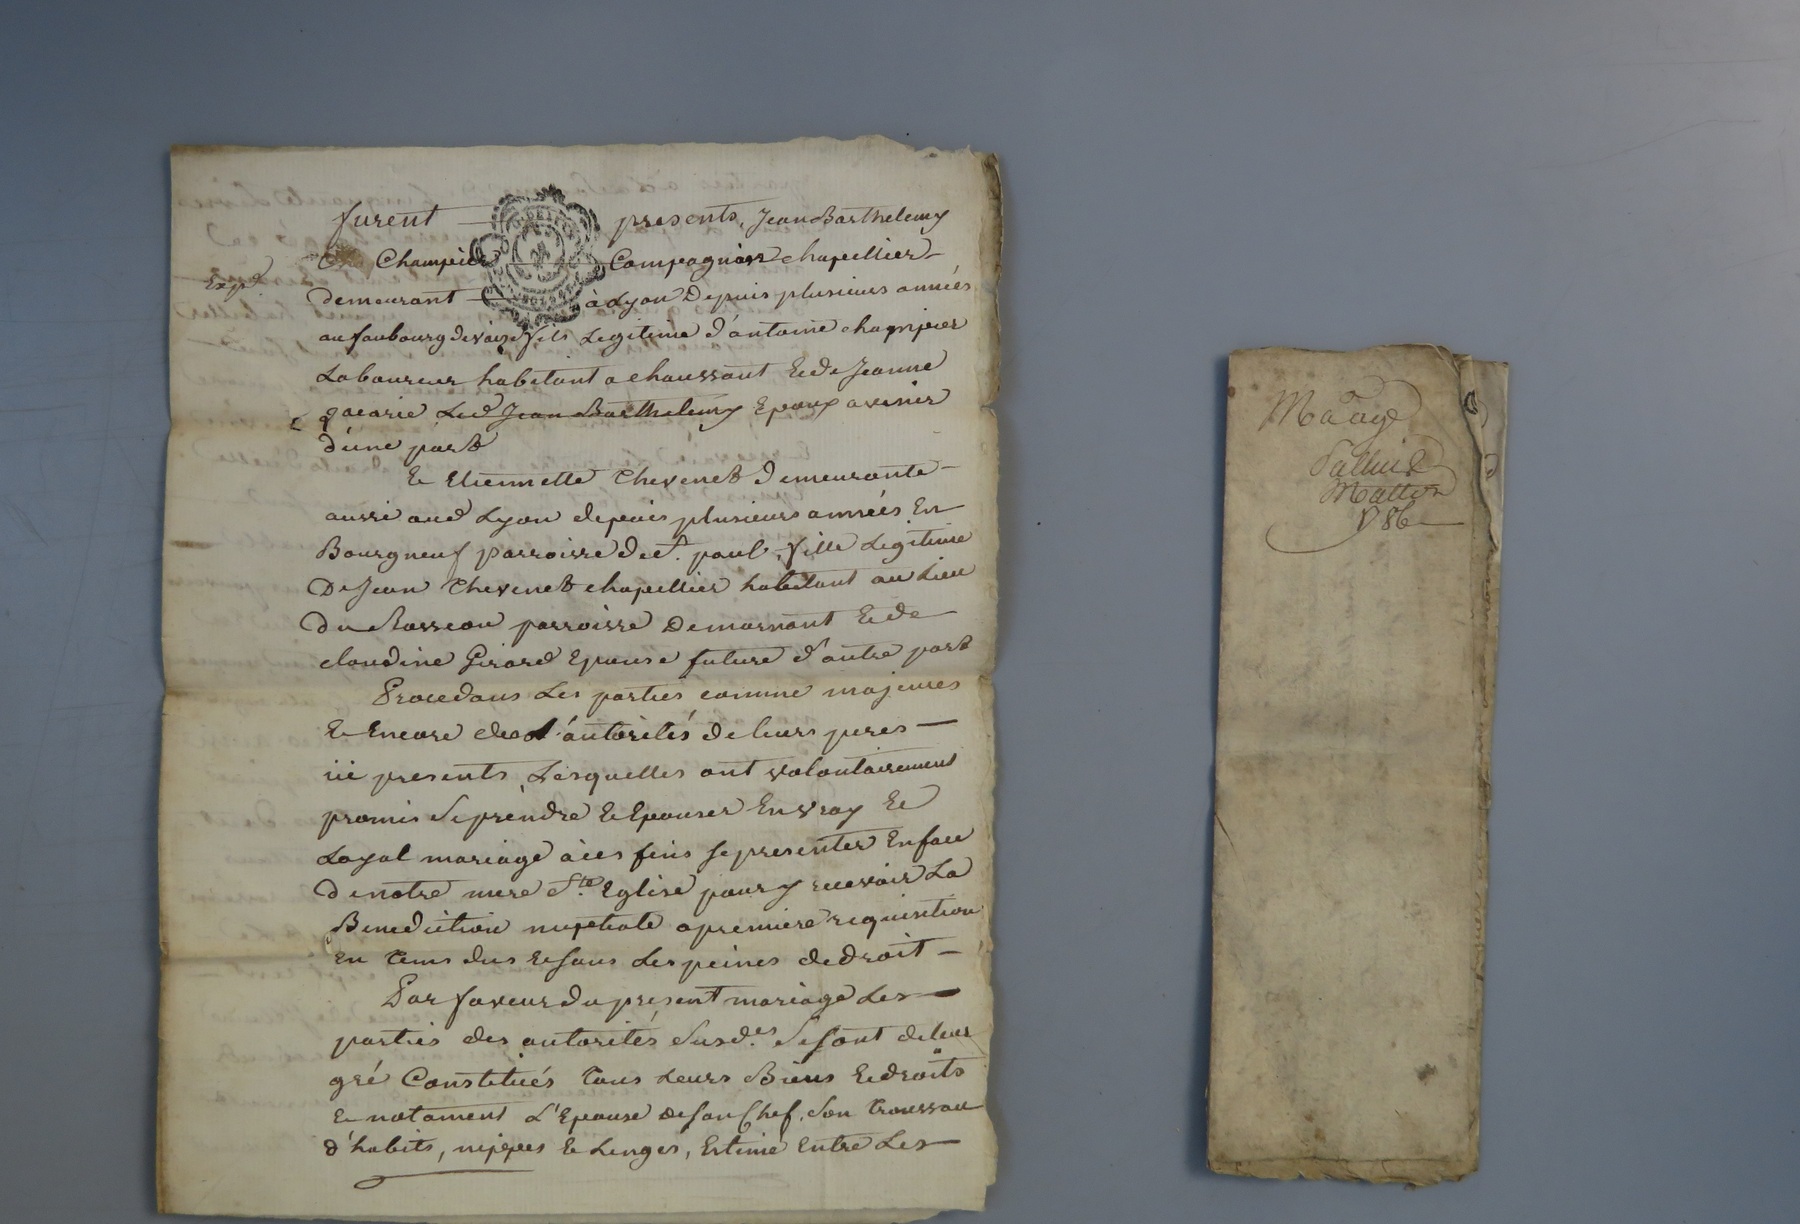 furent presents, Jean Barthelemy
Champier Compagnion chapellier
Exp.
demeurant à Lyon Depuis plusieurs années
au faubourg de vaize fils Legitime d'antoine champier
Laboureur habitant a chaussant Et de Jeanne
Led Jean Barthelemy Epoux avenir
d'une part
Et Etiennette Chevenet demeurante
aussi aud Lyon depuis plusieurs années En
Bourgneuf parroisse de st. paul, fille Legitime
De Jean Chevenet chapellier habitant au Lieu
du parroisse De mornant Et de
claudine Girard Epouse future d'autre part
Procedans Les parties comme majeures
Et Encore de L'autorités de leurs peres
ici presents Lesquelles ont volontairement
promis se prendre Et Epouser En vray Et
Loyal mariage à ces fins se presenter En face
de notre mere ste Eglise pour y recevoir La
Benediction nuptiale a premiere requisition
En tems dus Et sous Les peines de droit
Par faveur du present mariage Les
parties des autorités susd.es se sont de leur
gré Constitués tous Leurs Biens Et droits
Et notament L'Epouse de son Chef, son troussau
d'habits, nippes Et Linges, Estimé Entre Les
Mariage
Mattor